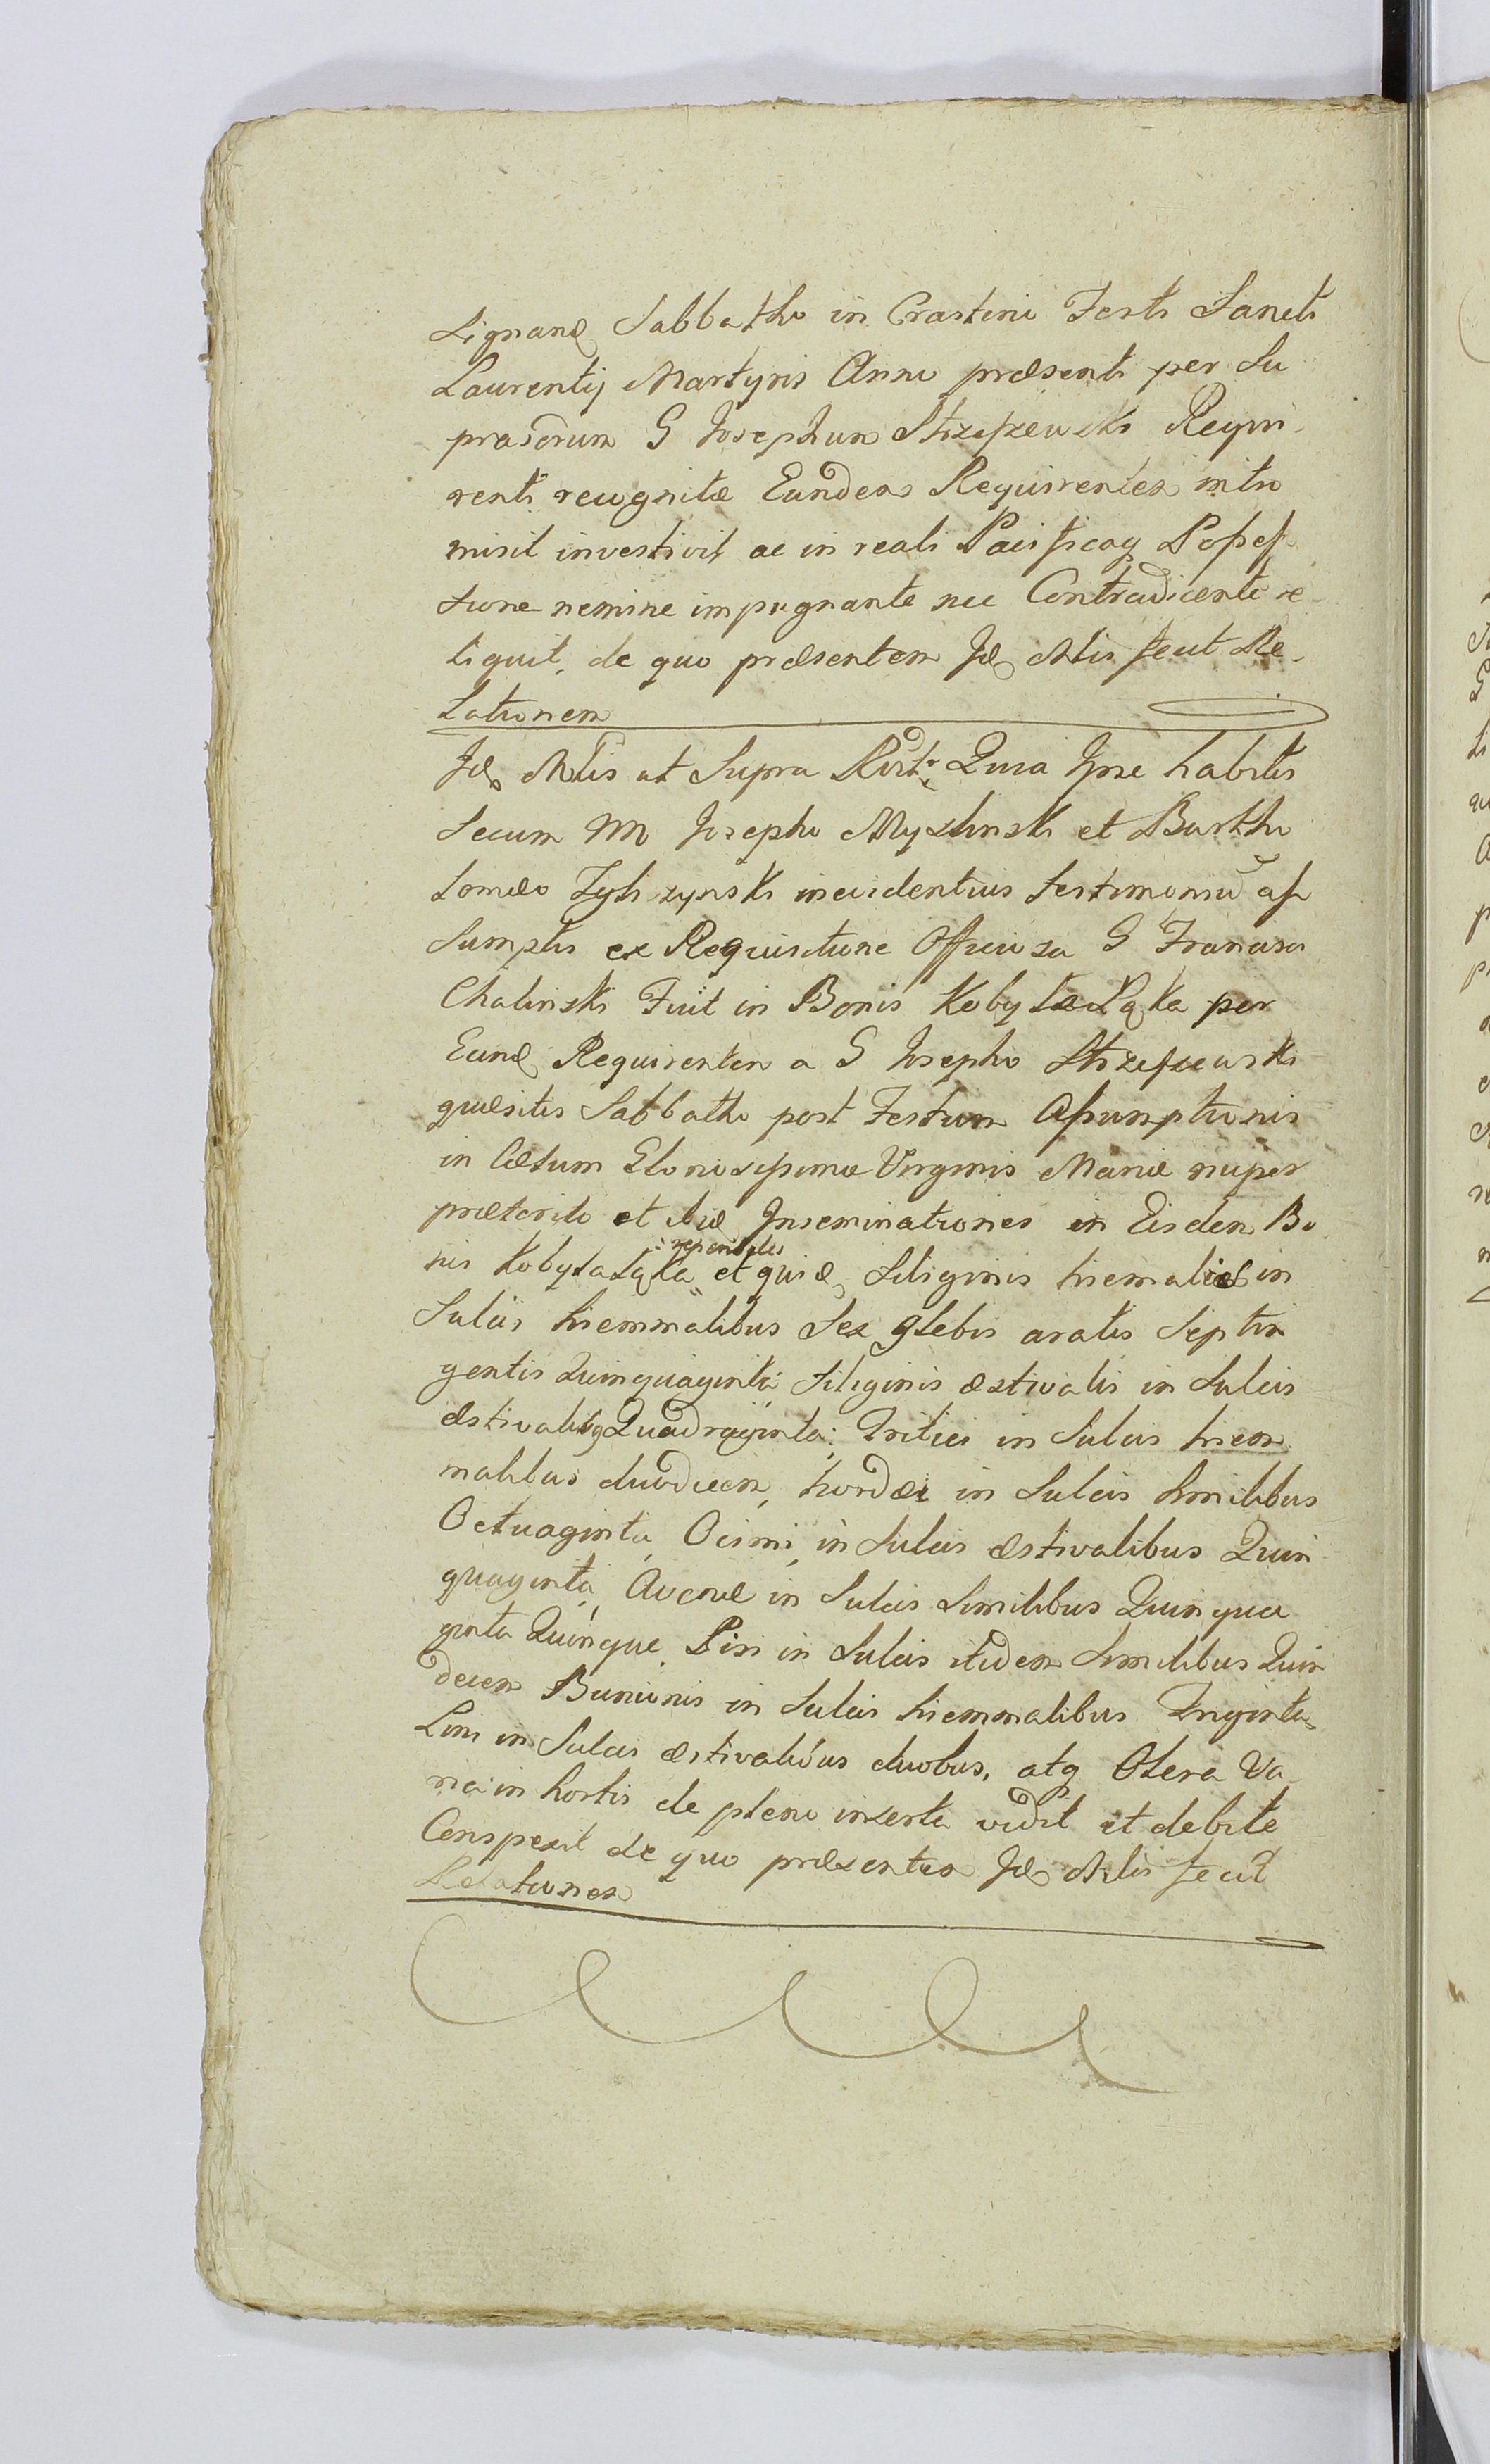 Lignand Sabbatho in Crastino Festi Sancti
Laurentij Martyris Anno præsenti per Su
prasdrum G Josephum Strzeszewski Requi-
renti recognitæ Eundem Requirentem intro
misit investivit ac in reali Pacificaq Possess
sione nemine impugnante nec Contradicente re-
liquit, de quo præsentem Jd Mlis fecit Re-
lationem
Jd Mlis ut Supra Quia Ipse habitis
Secum NN Josepho Myszlinski et Bartho
lomæo in evidentius testimoniū as
sumptis ex Requisitione Officiosa G Francisci
Chalinski Fuit in Bonis Kobyla Łąka per
Eund Requirentem a G Josepho Strzeszewski
quæsitis Sabbatho post Festum Assumptionis
in Cælum Gloriosissimæ Virginis Mariæ nuper
præterito et ibid Inseminationes in Eisdem Bo
repertales
nis Kobyla Łąka et quid Siliginis hiemalis in
Sulcis hiemmalibus Sex glebis aratis Septin
gentis Quinquaginta Siliginis æstivalis in Sulcis
æstivalibg Quadraginta: Tritici in Sulcis hiem
malibus duodecem, hordæi in Sulcis similibus
Octuaginta, Ocimi in Sulcis æstivalibus Quin
quaginta, Avenæ in Sulcis Similibus Quinqua
ginta Quinque Pisi in Sulcis itidem Similibus Quin
decem Bunionis in Sulcis hiemmalibus Triginta
Lini in Sulcis æstivalibus duobus, atq Olera Va
ria in hortis de pleno inserta vidit et debite
Conspexit de quo præsentem Jd Mlis fecit
Relationem